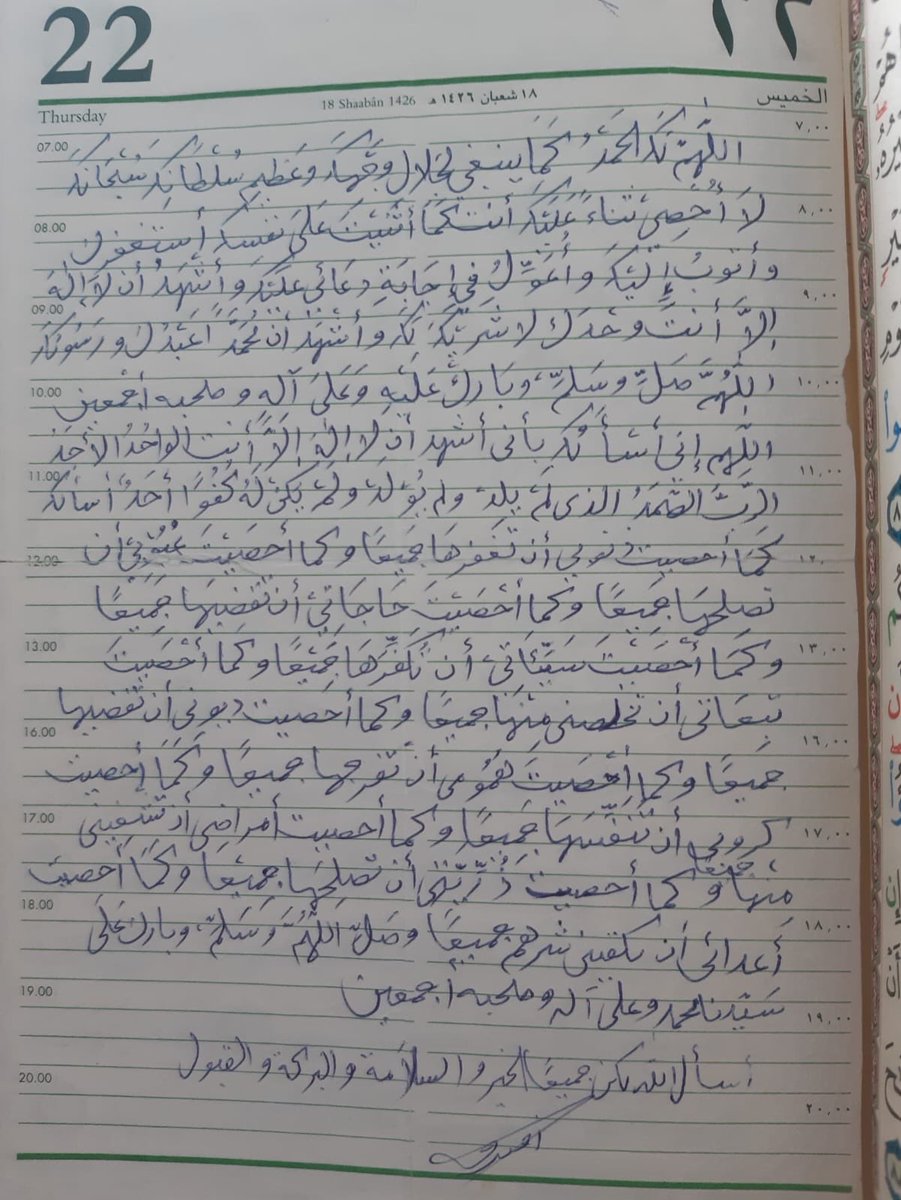 22 ٢٢
Thursday 18 Shaabân 1426 ١٨ شعبان ١٤٢٦ هـ الخميس
07.00 ٧,٠٠
اللَّهُمَّ لَكَ الحَمْدُ كَمَا ينبغي لجَلالِ وَجْهِكَ وَعَظِيمِ سُلْطَانِكَ سُبْحَانَكَ
08.00 ٨,٠٠
لَا أُحْصِي ثَنَاءً عَلَيْكَ أنت كَمَا أَثْنَيْتَ عَلَى نَفْسِكَ أستغفرك
وأتوبُ إِلَيْكَ وأُعَوِّلُ في إجَابَةِ دعَائي عَلَيْكَ وَأَشْهَدُ أن لَا إلَهَ
09.00 ٩,٠٠
إلَّا أَنتَ وَحْدَكَ لا شَرِيكَ لَكَ وأَشْهَدُ أنَّ مُحَمَّدًا عَبْدُكَ وَرَسُولُكَ
10.00 ١٠,٠٠
اللَّهُمَّ صَلِّ وسَلِّمْ وَبَارِكْ عَلَيْهِ وَعَلَى آله وصحبه أجمعين
اللَّهم إنِّي أَسْأَلُكَ بأني أشهد أن لا إلَهَ إلَّا أَنت الواحُد الأَحَدُ
11.00 ١١,٠٠
الرَّبُّ الصَّمَدُ الذى لَمْ يلدْ ولم يُولَدْ وَلَمْ يَكُنْ لَهُ كُفُوًا أَحَدٌ أسألك
12.00 ١٢,٠٠
كَمَا أحصيت ذنوبي أن تَغْفِرَهَا جَمِيعًا وكما أَحصَيْتَ عيوبي أن
تصلحهَا جَمِيعًا وكما أَحْصَيْتَ حَاجَاتِي أن تقضِيَهَا جَمِيعًا
13.00 ١٣,٠٠
وكَمَا أَحْصَيْتَ سَيِّئَاتي أن تُكَفِّرَهَا جَمِيْعًا وكَمَا أَحْصَيْتَ
تبعَاتي أن تخلصنى مِنْهَا جَمِيعًا وكما أحصيت ديونى أن تقضيها
16.00 ١٦,٠٠
جَمِيعًا وكما أَحْصَيتَ هُمُومِى أن تفرجها جميعًا وَكَمَا أحصيت
17.00 ١٧,٠٠
كروبي أن تُنَفِّسَهَا جَمِيعًا وكما أحصيت أمراضى أن تشفينى
منها جميعًا وكما أحصيت ذُرِّيَّتي أن تصلحَهَا جميعًا وكَمَا أحْصَيْت
18.00 ١٨,٠٠
أَعدائى أن تكفينى شرهم جميعًا وصَلِّ اللَّهُمَّ وَسَلِّمْ وبارك عَلَى
19.00 ١٩,٠٠
سَيِّدنا محمد وعلى آله وصحبه أجمعين
أسأل الله لكن جميعًا الخير والسلامة والبركة والقبول
20.00 ٢٠,٠٠